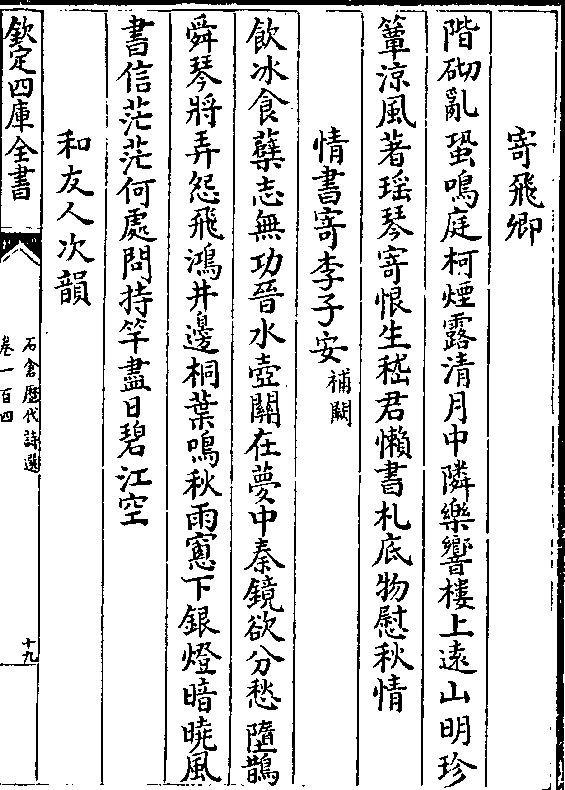 寄飛卿
階砌亂蛩鳴庭柯煙露清月中隣樂響樓上遠山明珍
簟涼風著瑶琴寄恨生嵇君懶書札底物慰秋情
情書寄李子安補闕
飲冰食蘗志無功晉水壺關在夢中秦鏡欲分愁墮鵲
舜琴將弄怨飛鴻井邊桐葉鳴秋雨窻下銀燈暗曉風
書信茫茫何處問持竿盡日碧江空
和友人次韻
欽定四庫全書
石倉歷代詩選
卷一百四
十九